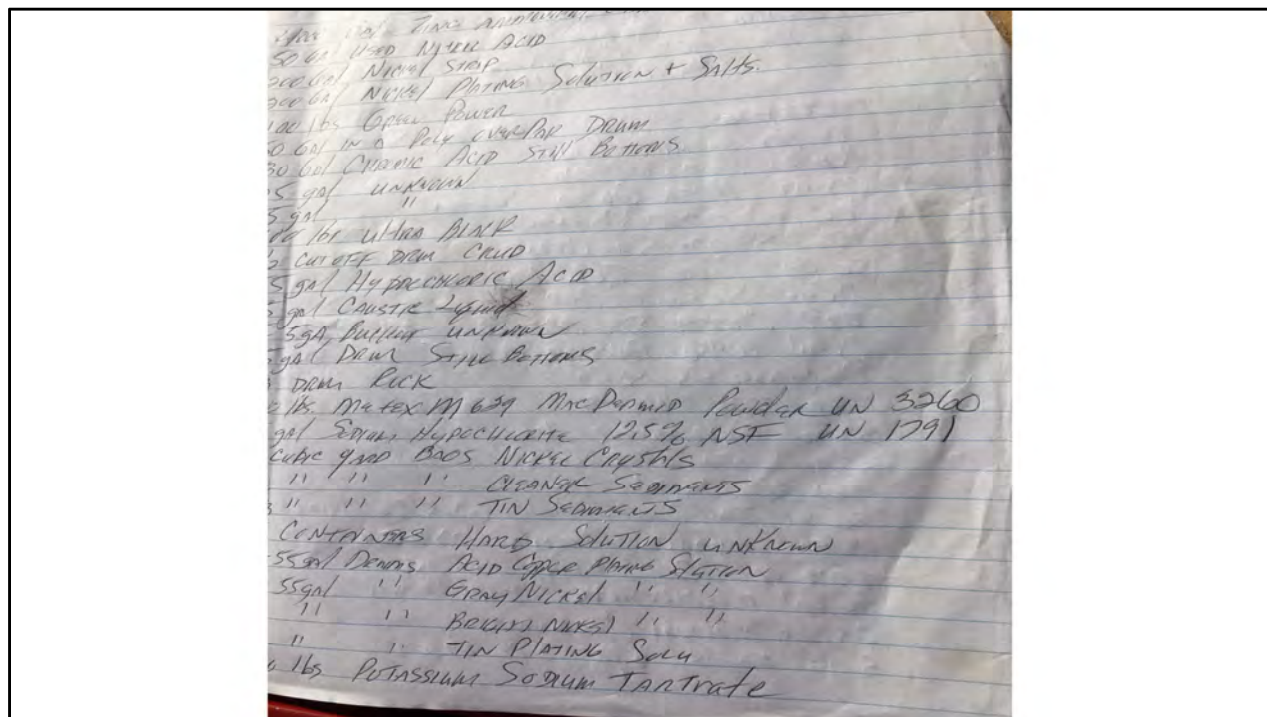 Zinc
50 gal Used Nitric Acid
200 Gal Nickel Strip
200 Gal Nickel Plating Solution + Salts.
100 lbs Green Power
0 Gal in a Poly OverPak Drum
30 Gal Chromic Acid Still Bottoms
5 gal Unknown
5 gal "
lbs Ultra Black
Cut off Drum Crud
5 gal Hypochloric Acid
gal Caustic Liquid
5 gal Bucket Unknown
5 gal Drum Still Bottoms
Drum Rick
lbs. Metex M 629 MacDermid Powder UN 3260
gal Sodium Hypochlorite 12.5% NSF UN 1791
Cubic yard Bags Nickel Crystals
" " " Cleaner Sediments
" " " Tin Sediments
Containers Hard Solution Unknown
55gal Drums Acid Copper Plating Slution
55gal " Gray Nickel " "
" " Bright Nickel " "
" " Tin Plating Solu
lbs Potassium Sodium Tartrate